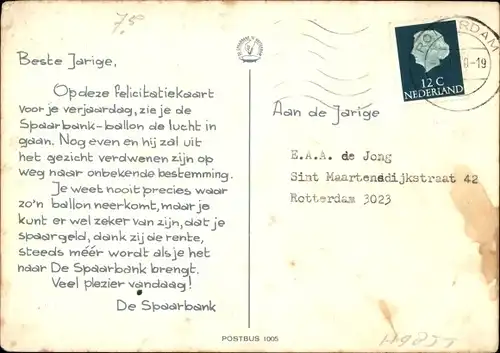 75
Beste Jarige,
Op deze felicitatiekaart
voor je verjaardag, zie je de
Spaarbank-ballon de lucht in
gaan. Nog even en hij zal uit
het gezicht verdwenen zijn op
weg naar onbekende bestemming.
Je weet nooit precies waar
zo'n ballon neerkomt, maar je
kunt er wel zeker van zijn, dat je
spaargeld, dank zij de rente,
steeds méér wordt als je het
naar De Spaarbank brengt.
Veel plezier vandaag!
De Spaarbank
ROTTERDAM
8-19
12 C
NEDERLAND
Aan de Jarige
E.A.A. de Jong
Sint Maartensdijkstraat 42
Rotterdam 3023
POSTBUS 1005